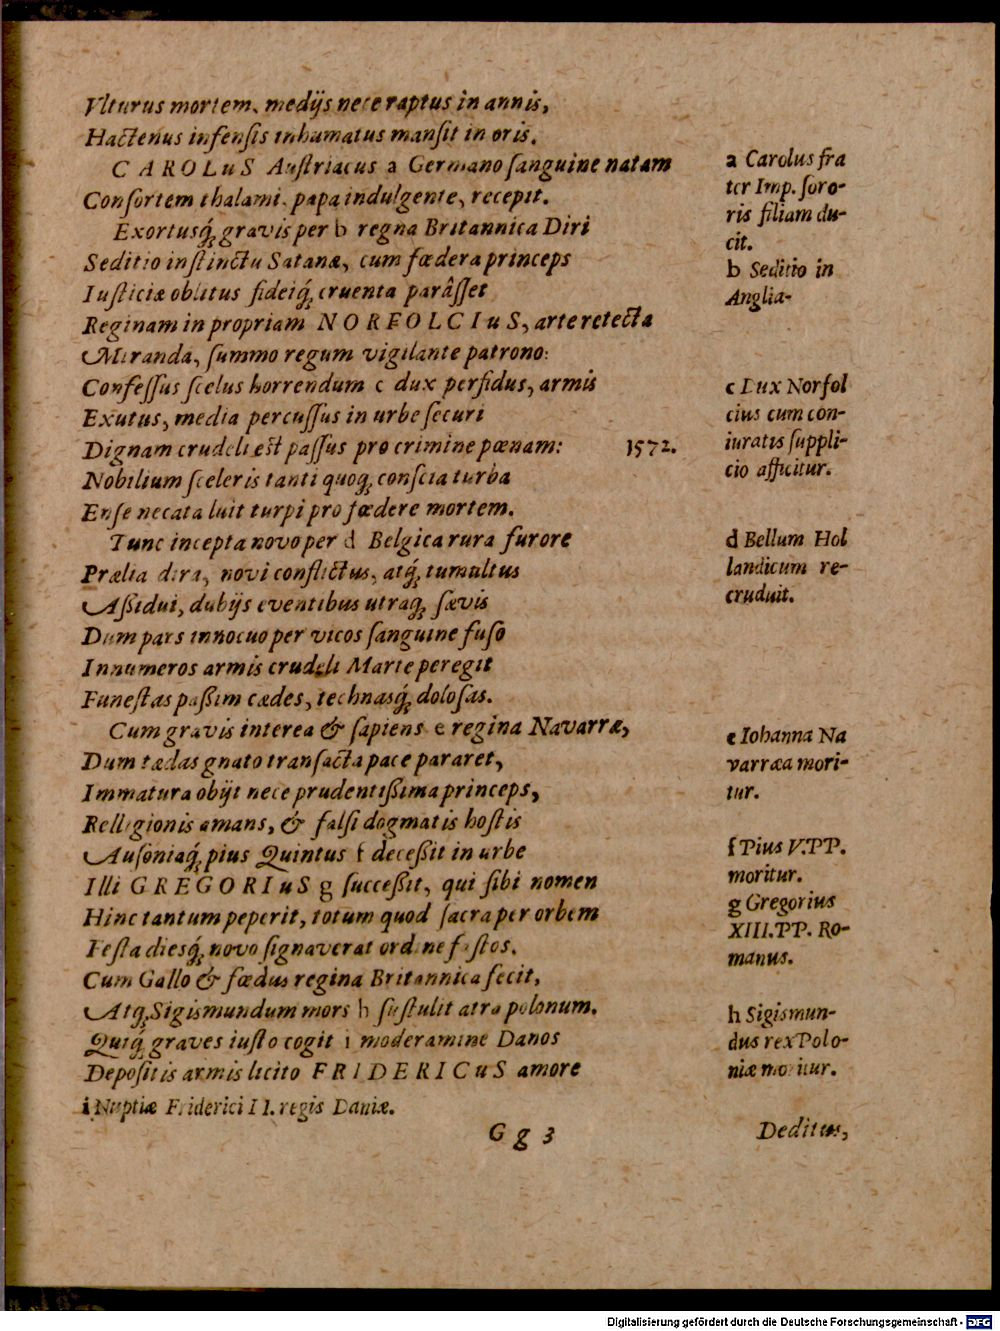 Ulturus mortem, medijs nece raptus in annis,
Hactenus infensis inhumatus mansit in oris.
CAROLuS Austriacus a Germano sanguine natam
Consortem thalami, papa indulgente, recepit.
Exortusq́; gravis per b regna Britannica Diri
Seditio instinctu Satanæ, cum fœdera princeps
Iusticiæ oblitus fideiq́; cruenta parâsset
Reginam in propriam NORFOLCIuS, arte retecta
Miranda, summo regum vigilante patrono:
Confessus scelus horrendum c dux perfidus, armis
Exutus, media percussus in urbe securi
Dignam crudeli est passus pro crimine pœnam: 1572.
Nobilium sceleris tanti quoq; conscia turba
Ense necata luit turpi pro fœdere mortem.
Tunc incepta novo per d Belgica rura furore
Prælia dira, novi conflictus, atq́; tumultus
Aßidui, dubijs eventibus utraq; sævis
Dum pars innocuo per vicos sanguine fuso
Innumeros armis crudeli Marte peregit
Funestas paßim cædes, technasq́; dolosas.
Cum gravis interea & sapiens e regina Navarræ,
Dum tædas gnato transacta pace pararet,
Immatura obijt nece prudentißima princeps,
Relligionis amans, & falsi dogmatis hostis
Ausoniaq́; pius Quintus f deceßit in urbe
Illi GREGORIuS g succeßit, qui sibi nomen
Hinc tantum peperit, totum quod sacra per orbem
Festa diesq́; novo signaverat ordine fastos.
Cum Gallo & fœdus regina Britannica fecit,
Atq; Sigismundum mors h sustulit atra polonum.
Quiq́; graves iusto cogit i moderamine Danos
Depositis armis licito FRIDERICuS amore
i Nuptiæ Friderici II. regis Daniæ.
Gg 3
Deditus,
a Carolus fra
ter Imp. soro-
ris filiam du-
cit.
b Seditio in
Anglia.
c Dux Norfol
cius cum con-
iuratis suppli-
cio afficitur.
d Bellum Hol
landicum re-
cruduit.
e Iohanna Na
varræa mori-
tur.
f Pius V. PP.
moritur.
g Gregorius
XIII. PP. Ro-
manus.
h Sigismun-
dus rex Polo-
niæ moritur.
Digitalisierung gefördert durch die Deutsche Forschungsgemeinschaft - DFG